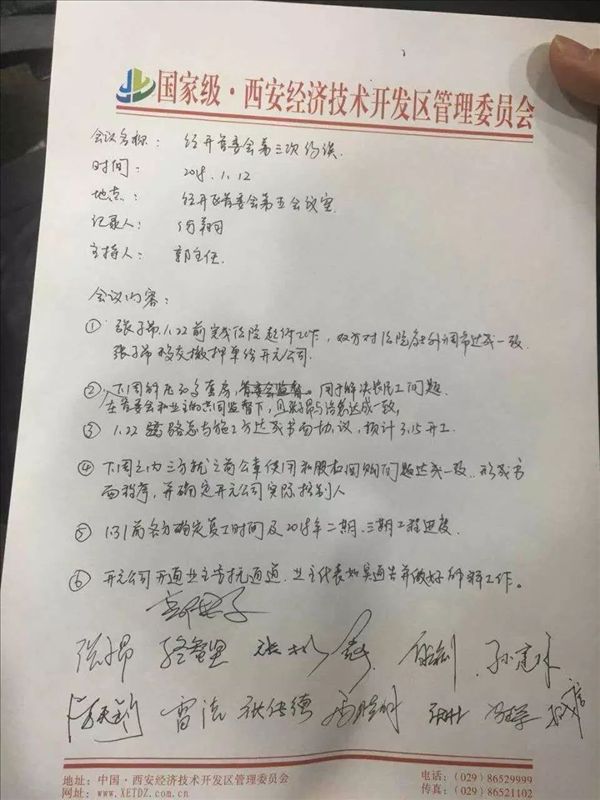 国家级·西安经济技术开发区管理委员会
会议名称：经开管委会第三次约谈.
时间：2018.1.12
地点：经开区管委会第五会议室
记录人：何翔
主持人：郭主任.
会议内容：
① 张子昂 1.22前完成法院起诉工作，双方对法院庭外调节达成一致.
张子昂移交撤押单给开元公司.
② 下周解 多套房，管委会监督。用于解决农民工问题.
在管委会和业主的共同监督下，且张子昂与 达成一致,
③ 1.22 路总与施工方达成书面协议，预计3.15开工.
④ 下周之内三方就之前公章使用和股权回购问题达成一致. 形成书
面程序，并确定开元公司实际控制人
⑤ 1.31前各方确定复工时间及2018年二期.三期工程进度.
⑥ 开元公司开通业主 通道. 业主代表如实通告并做好解释工作。
孙建
雷
地址：中国·西安经济技术开发区管理委员会 电话：（029）86529999
网址：www.XETDZ.com.cn 传真：（029）86521102